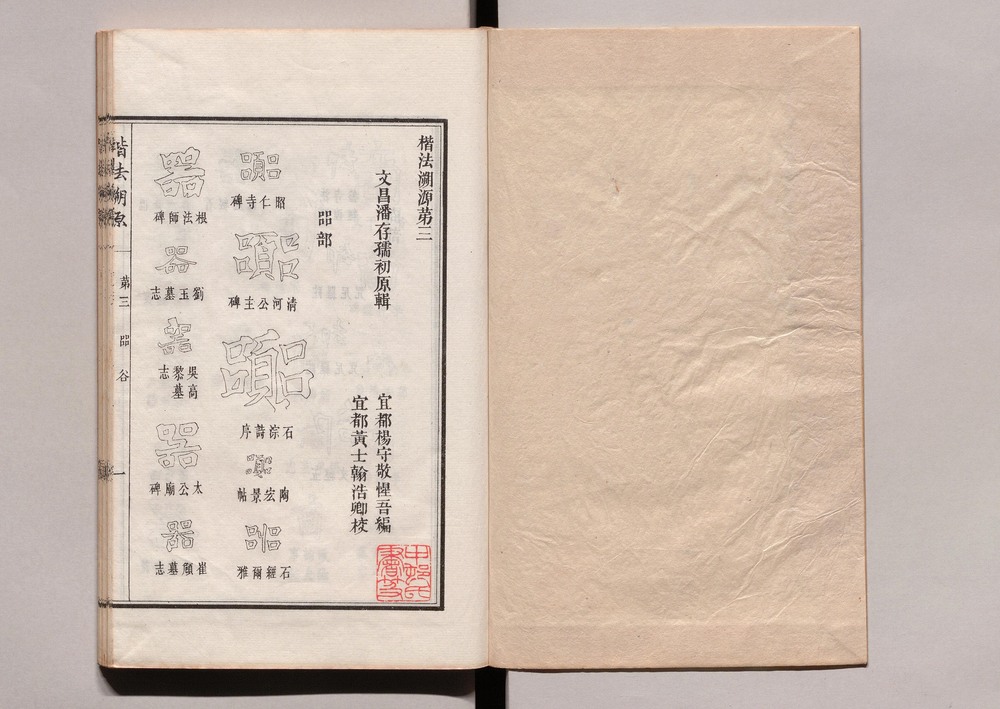 楷法溯源第三
文昌潘存孺初原輯
宜都楊守敬惺吾編
宜都黃士翰浩卿校
㗊部
昭仁寺碑
清河公主碑
石淙詩序
陶宏景帖
石經爾雅
器
根法師碑
器
劉玉墓志
吳高黎墓志
器
太公廟碑
器
崔頠墓志
楷法溯原
第三
㗊
谷
一
中邨氏